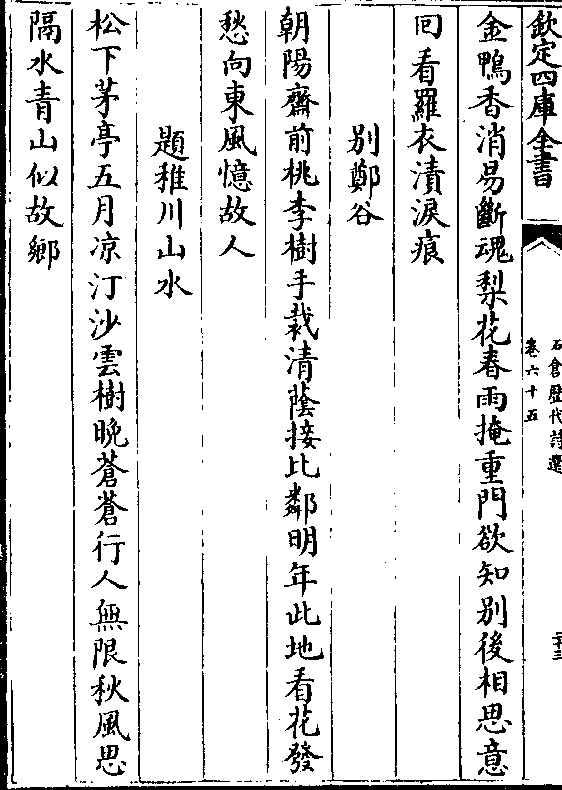 欽定四庫全書
石倉歷代詩選
卷六十五
二十三
金鴨香消易斷魂梨花春雨掩重門欲知別後相思意
囘看羅衣漬淚痕
別鄭谷
朝陽齋前桃李樹手栽清蔭接比鄰明年此地看花發
愁向東風憶故人
題稚川山水
松下茅亭五月凉汀沙雲樹晚蒼蒼行人無限秋風思
隔水青山似故鄉